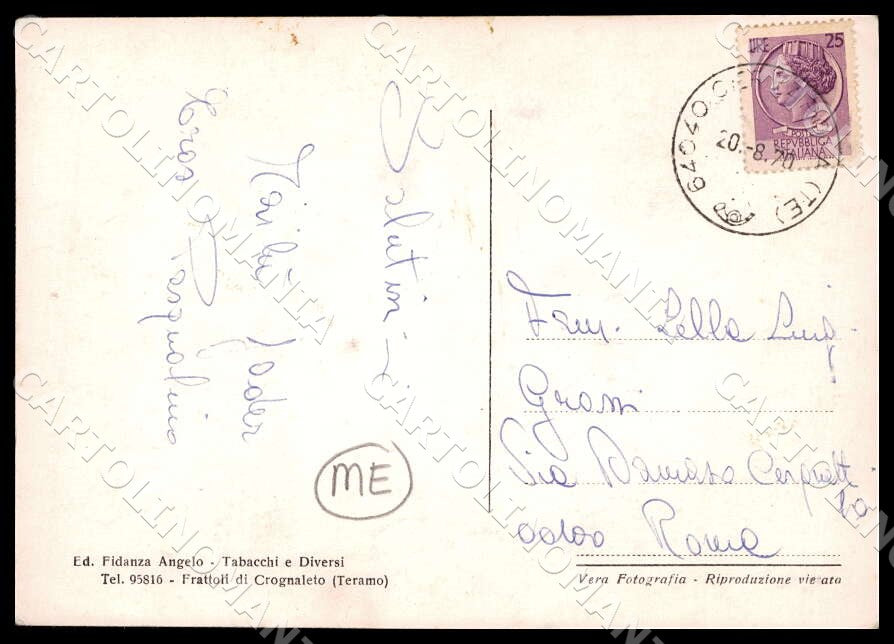 LIRE 25
POSTE
REPVBBLICA
ITALIANA
64040
(TE)
20.-8.70
Salutini
Jader
Pasqualino
Fam. Lella Luigi
Grossi
Via Damaso Cerquetti
00100 Roma
ME
Ed. Fidanza Angelo - Tabacchi e Diversi
Tel. 95816 - Frattoli di Crognaleto (Teramo)
Vera Fotografia - Riproduzione vietata
CARTOLINOMANIA